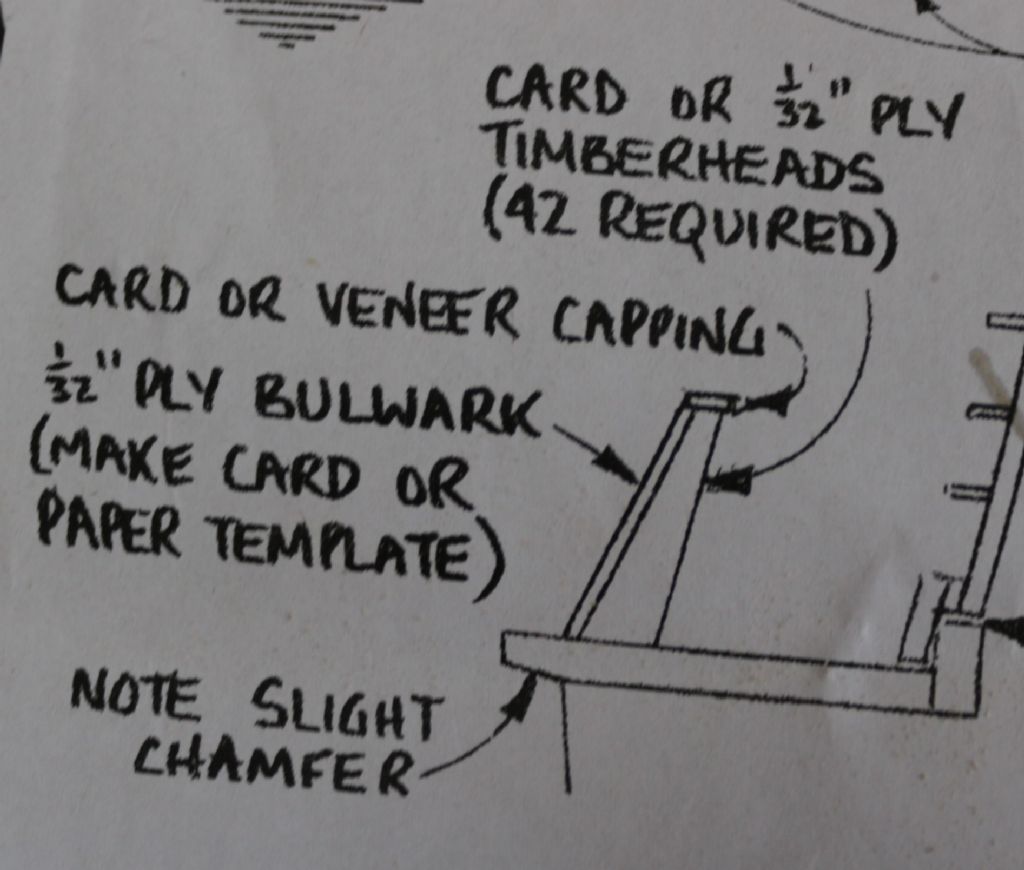 CARD OR 1/32" PLY
TIMBERHEADS
(42 REQUIRED)
CARD OR VENEER CAPPING
1/32" PLY BULWARK
(MAKE CARD OR
PAPER TEMPLATE)
NOTE SLIGHT
CHAMFER